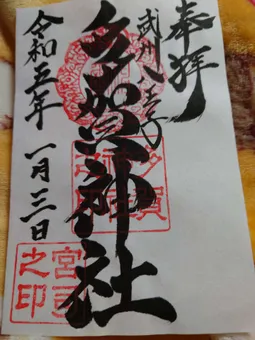 奉拝
武州八王子
多賀神社
令和五年 一月三日
多賀
宮司
之印